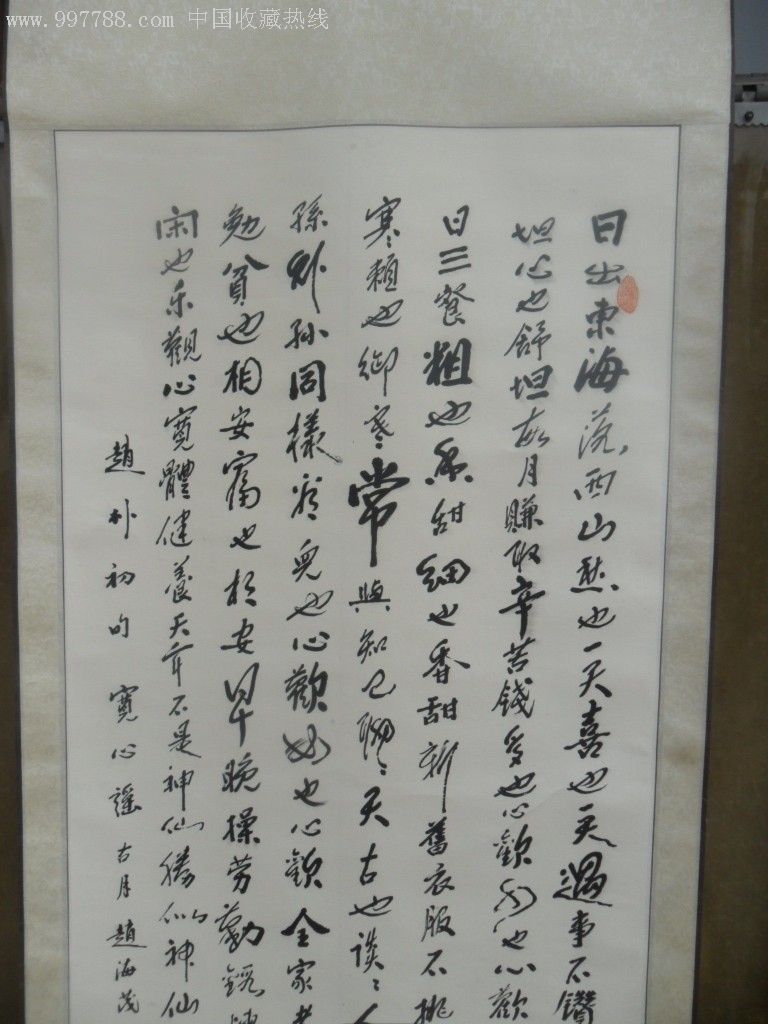 www.997788.com 中国收藏热线
日出東海落西山愁也一天喜也一天遇事不鑽
坦心也舒坦每月賺取辛苦錢多也心歡少也心歡
日三餐粗也香甜細也香甜新舊衣服不挑
寒賴也御寒常與知己聊聊天古也談談
孫外孫同樣看兒也心歡女也心歡全家老
勉貧也相安富也相安早晚操勞勤鍛煉
闲也乐觀心寬體健養天年不是神仙勝似神仙
趙朴初句 寬心謠 古月趙海茂